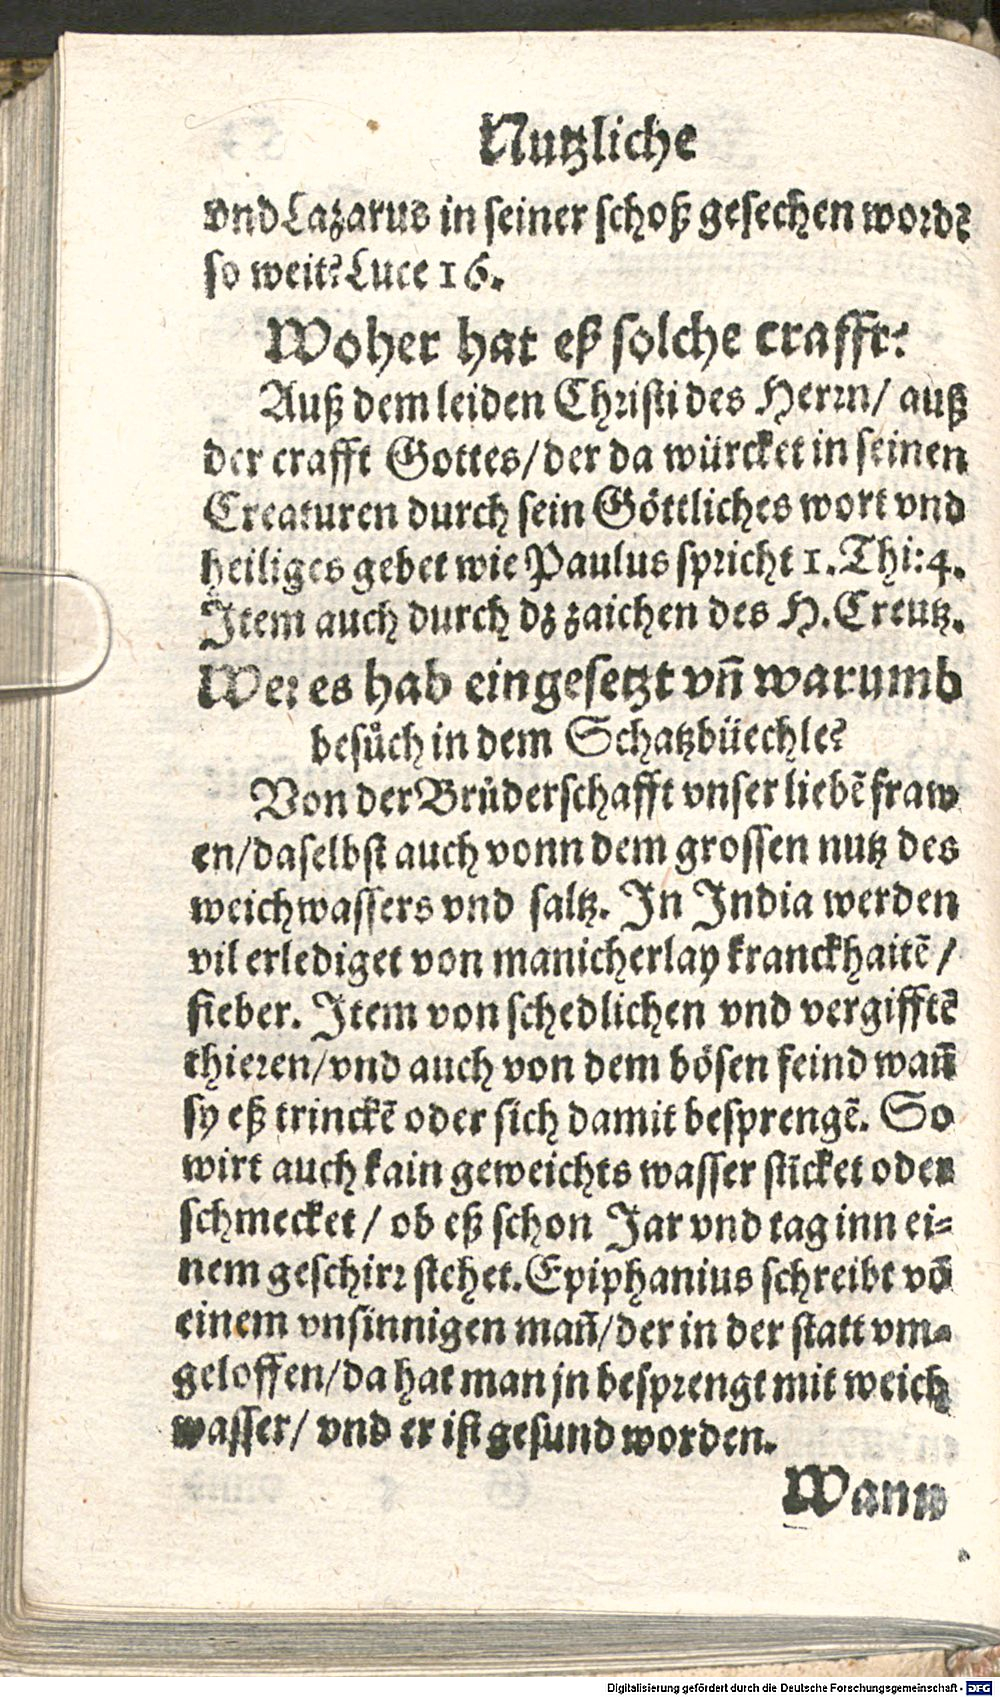 Nutzliche
vnd Lazarus in seiner schoß gesechen wordē
so weit? Luce 16.
Woher hat eß solche crafft?
Auß dem leiden Christi des Herrn/ auß
der crafft Gottes/ der da würcket in seinen
Creaturen durch sein Göttliches wort vnd
heiliges gebet wie Paulus spricht 1. Thi: 4.
Item auch durch dz zaichen des H. Creutz.
Wer es hab eingesetzt vn̄ warumb
besůch in dem Schatzbüechle?
Von der Brůderschafft vnser liebē fraw
en/ daselbst auch vonn dem grossen nutz des
weichwassers vnd saltz. In India werden
vil erlediget von manicherlay kranckhaitē/
fieber. Item von schedlichen vnd vergifftē
thieren/ vnd auch von dem bösen feind wan̄
sy eß trinckē oder sich damit besprengē. So
wirt auch kain geweichts wasser stīcket oder
schmecket/ ob eß schon Jar vnd tag inn ei=
nem geschirr stehet. Epiphanius schreibt vō
einem vnsinnigen man̄/ der in der statt vm=
geloffen/ da hat man jn besprengt mit weich
wasser/ vnd er ist gesund worden.
Wann
Digitalisierung gefördert durch die Deutsche Forschungsgemeinschaft - DFG